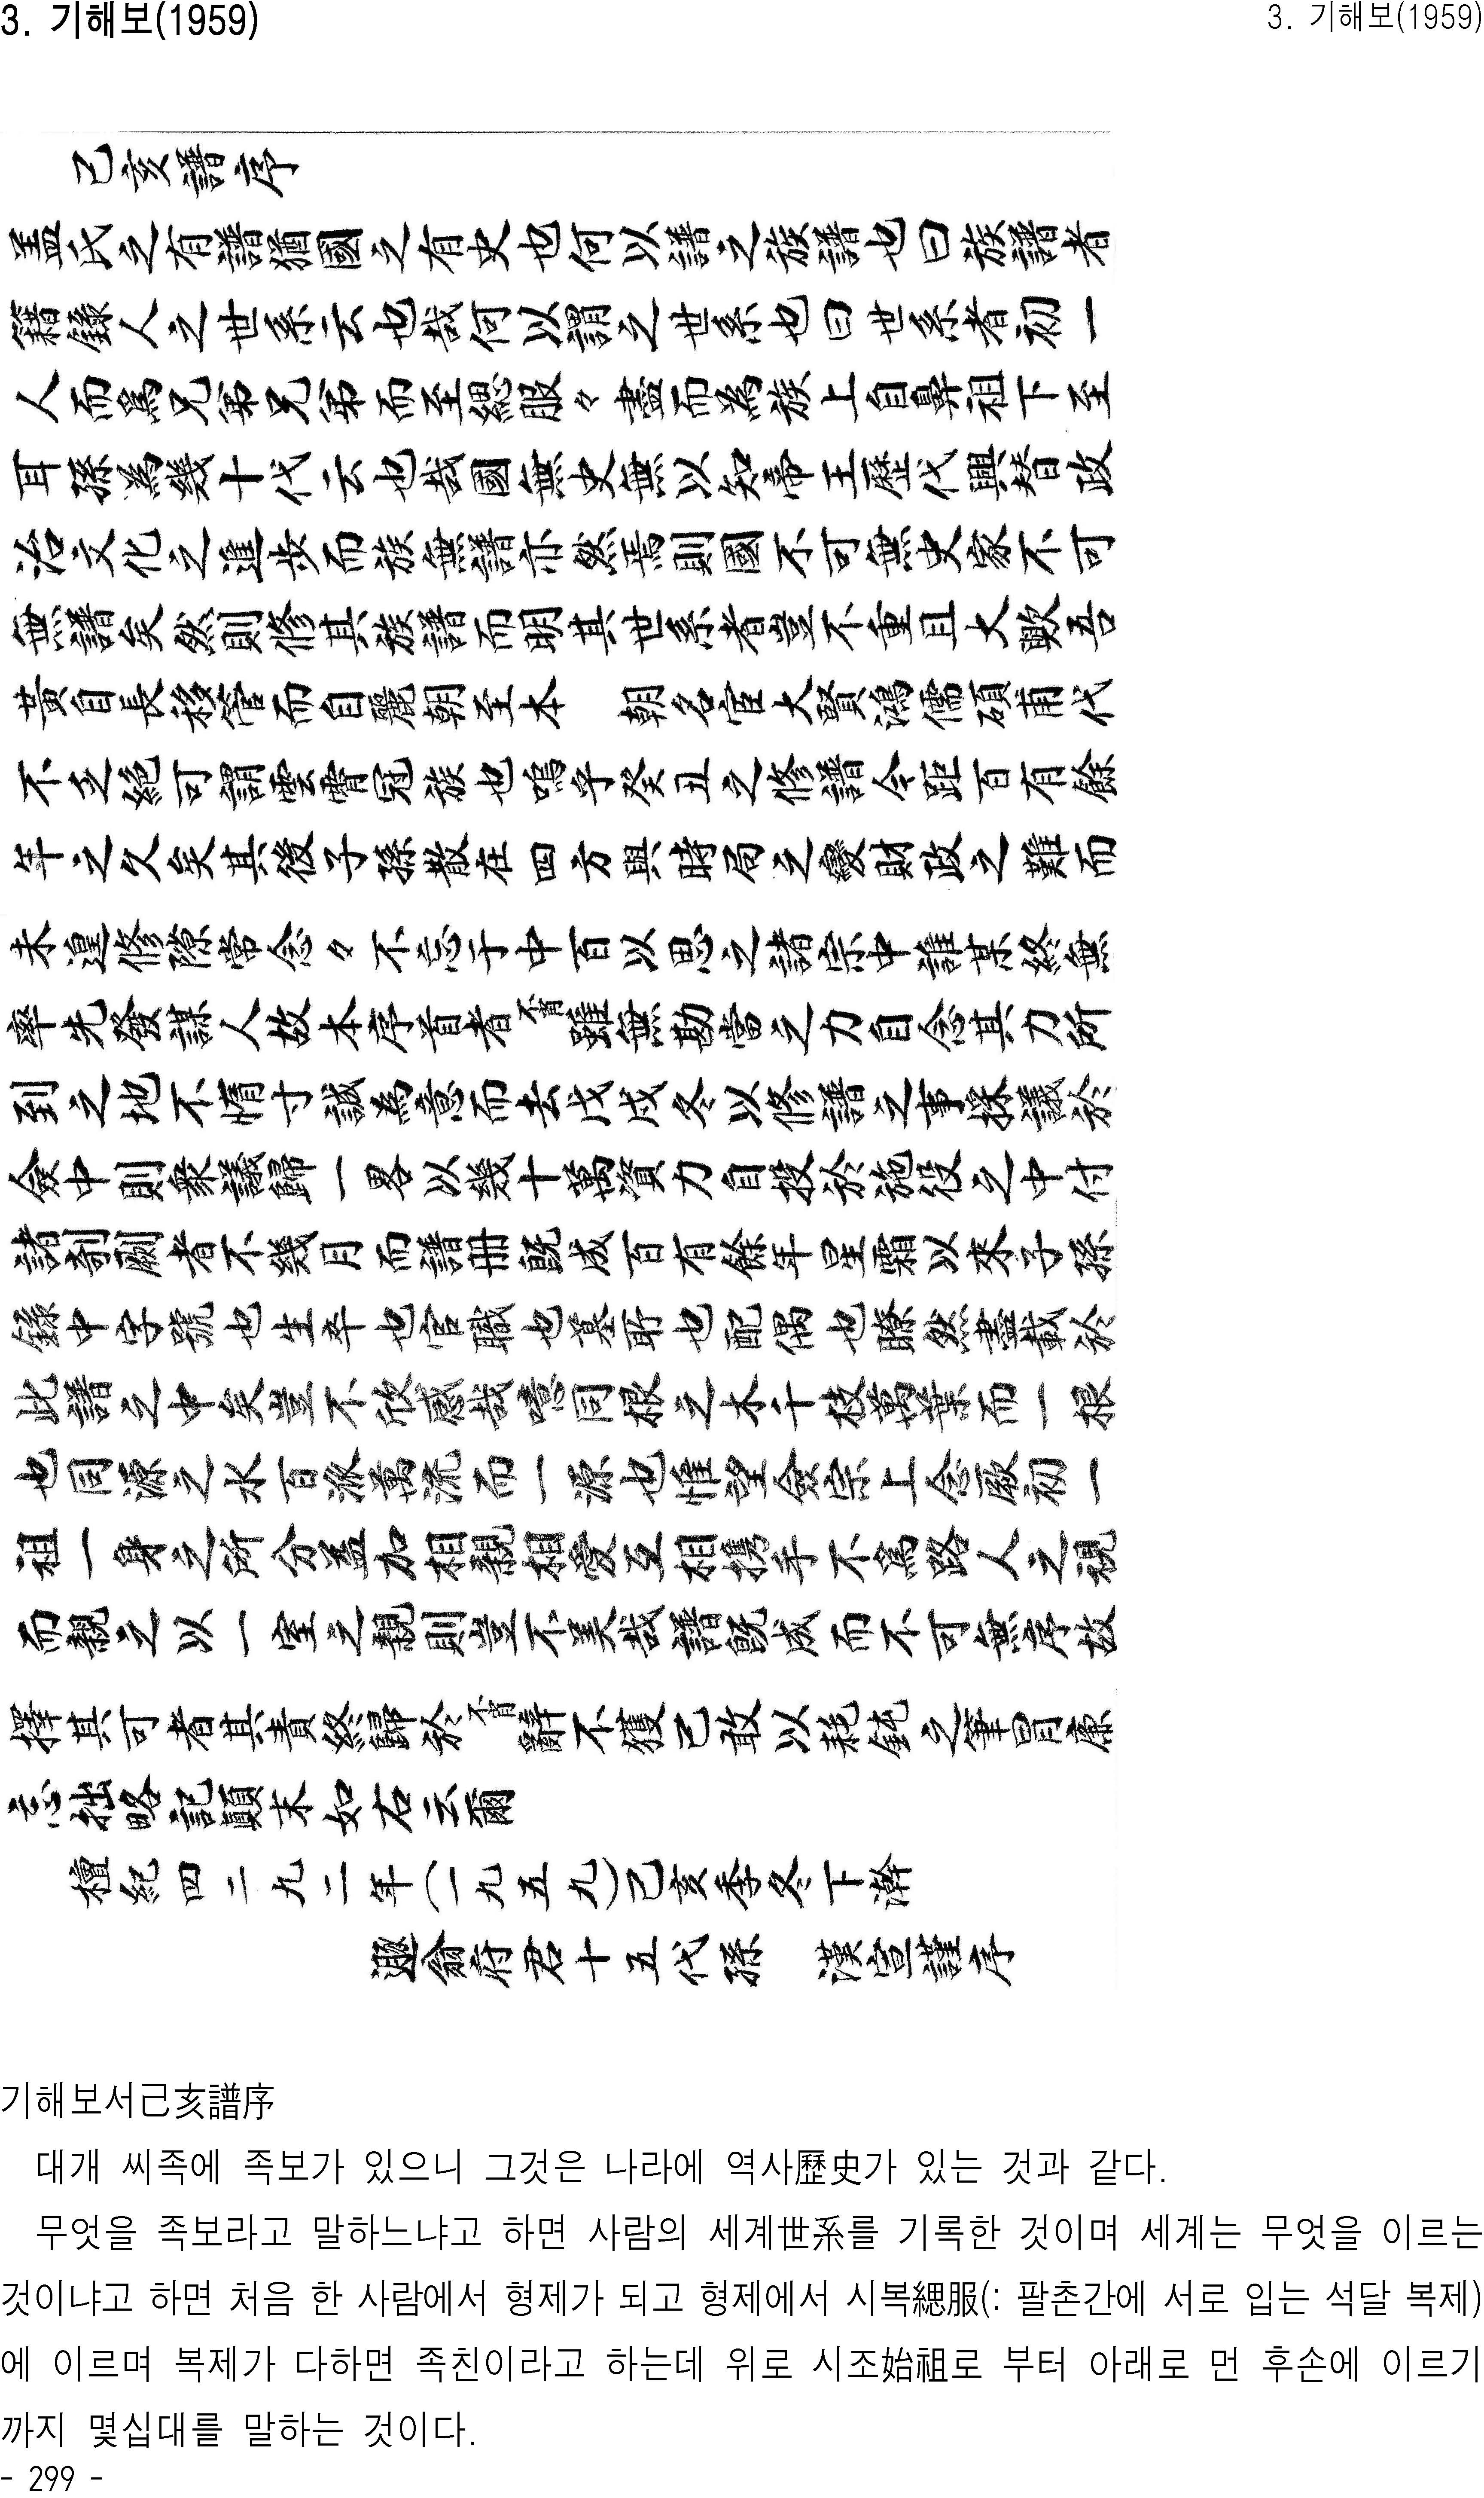 3. 기해보(1959)
3. 기해보(1959)
己亥譜序
盖氏之有譜猶國之有史也何以譜之族譜也曰族譜者
籍錄人之世系云也哉何以謂之世系也曰世系者初一
人而爲兄弟兄弟而至緦服々盡而爲族上自鼻祖下至
耳孫爲幾十代云也哉國無史無以知帝王歷代興替政
治文化之進步而族無譜亦然焉則國不可無史家不可
無譜矣然則修其族譜而明其世系者豈不重且大歟吾
黃自長移管而自麗朝至本 朝名宦大賢鴻儒碩甫代
不乏絕可謂雲霄冠族也嗚乎癸丑之修譜今距百有餘
年之久矣其後子孫散在四方與時局之變財政之難而
未遑修隙常念々不忘于中百以思之諸宗中誰某終無
率先發謀人故本序首者不肖雖無勘當之力自念其力所
到之地不惰寸誠爲意而去戊戌冬以修譜之事採議於
僉中則衆議歸一畧以幾十萬資力自投於施役之中付
諸剞劂者不幾月而譜冊旣成百有餘年星霜以來子孫
錄中字號也生卒也官職也墓所也配偶也瞭然盡載於
此譜之中矣豈不欣感哉噫同根之木千枝萬葉而一根
也同源之水百派萬流而一源也惟望僉宗上念厥初一
祖一身之所分盖加相親相愛互相携手不爲路人之視
而親之以一室之親則豈不美哉譜旣成而不可無序故
擇其可者其責終歸於不肖辭不獲已敢以耗鈍之筆冒廉
忘拙略記顚末如右云爾
檀紀四二九二年(一九五九)己亥季冬下澣
翁府君十五代孫 漢宣謹序
기해보서己亥譜序
대개 씨족에 족보가 있으니 그것은 나라에 역사歷史가 있는 것과 같다.
무엇을 족보라고 말하느냐고 하면 사람의 세계世系를 기록한 것이며 세계는 무엇을 이르는
것이냐고 하면 처음 한 사람에서 형제가 되고 형제에서 시복緦服(: 팔촌간에 서로 입는 석달 복제)
에 이르며 복제가 다하면 족친이라고 하는데 위로 시조始祖로 부터 아래로 먼 후손에 이르기
까지 몇십대를 말하는 것이다.
- 299 -